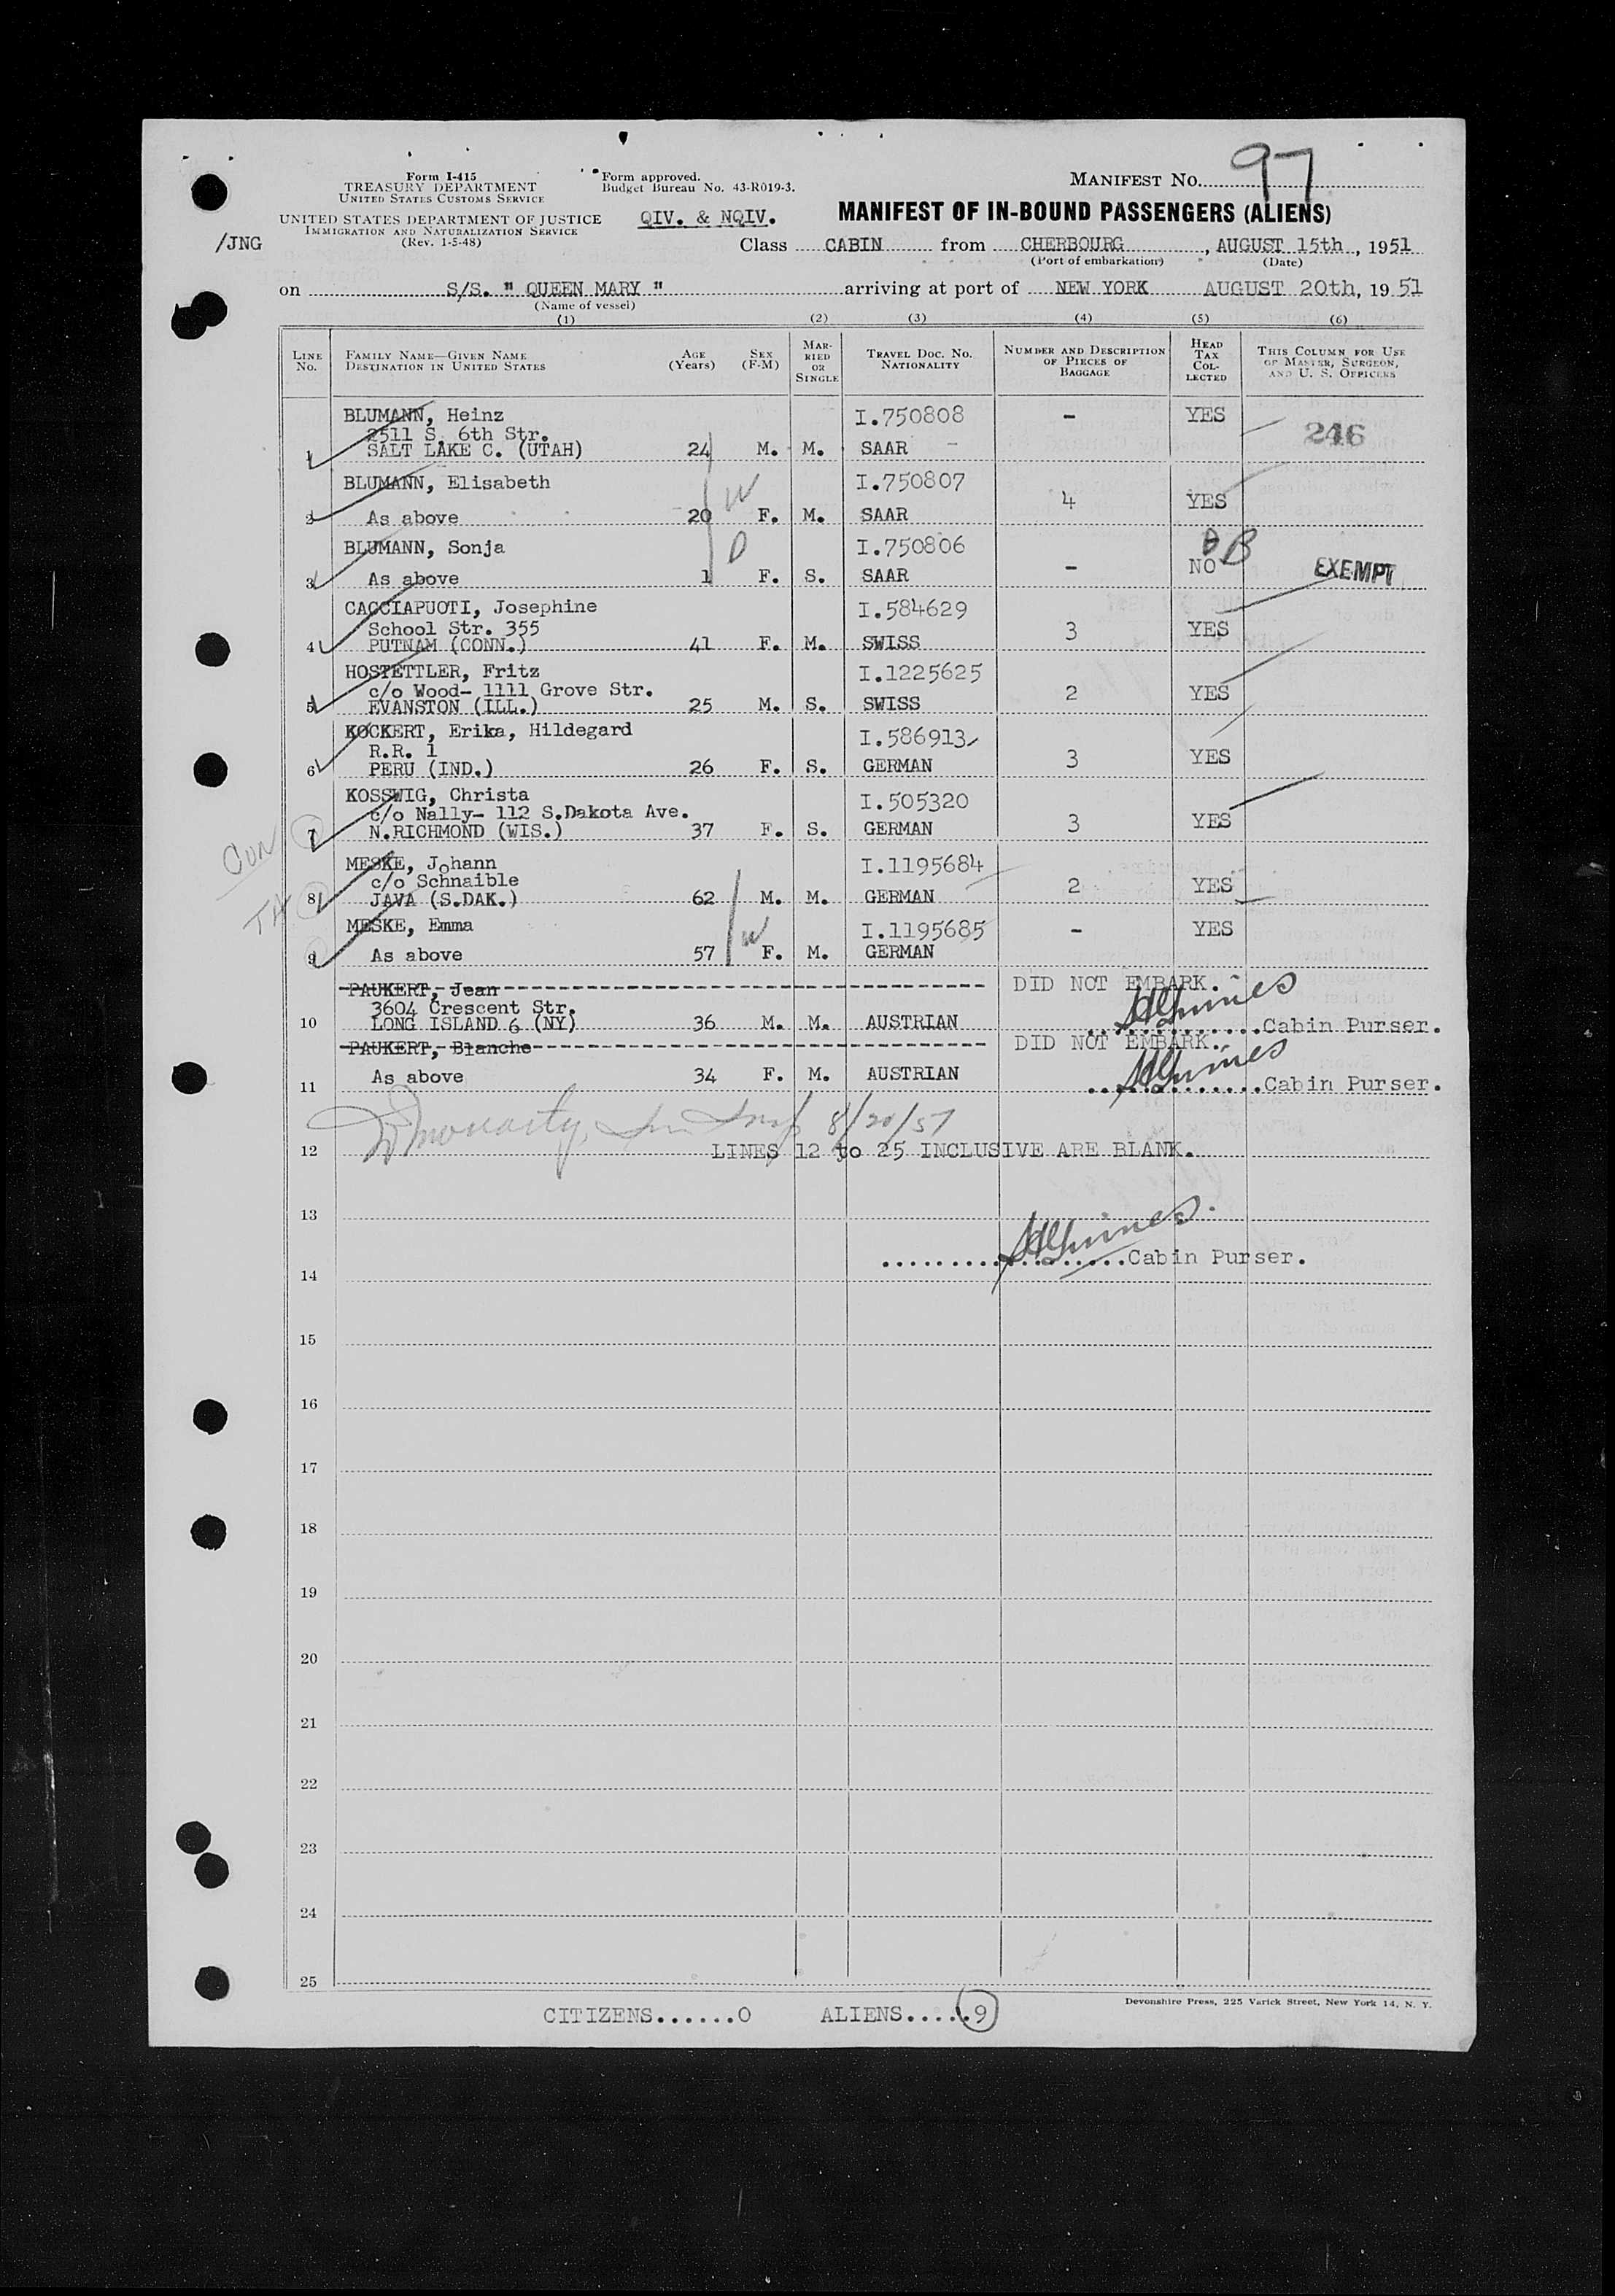 Form I-415
TREASURY DEPARTMENT
UNITED STATES CUSTOMS SERVICE
UNITED STATES DEPARTMENT OF JUSTICE
IMMIGRATION AND NATURALIZATION SERVICE
(Rev. 1-5-48)
/JNG
Form approved.
Budget Bureau No. 43-R019-3.
QIV. & NQIV.
MANIFEST NO. 97
MANIFEST OF IN-BOUND PASSENGERS (ALIENS)
Class CABIN from CHERBOURG, AUGUST 15th, 1951
(Port of embarkation) (Date)
on S/S. " QUEEN MARY " arriving at port of NEW YORK AUGUST 20th, 19 51
(Name of vessel)
(1) (2) (3) (4) (5) (6)
LINE NO. FAMILY NAME—GIVEN NAME DESTINATION IN UNITED STATES AGE (Years) SEX (F-M) MARRIED OR SINGLE TRAVEL DOC. NO. NATIONALITY NUMBER AND DESCRIPTION OF PIECES OF BAGGAGE HEAD TAX COLLECTED THIS COLUMN FOR USE OF MASTER, SURGEON, AND U. S. OFFICERS
BLUMANN, Heinz I.750808 - YES
2511 S. 6th Str. 246
1 SALT LAKE C. (UTAH) 24 M. M. SAAR -
BLUMANN, Elisabeth I.750807
W 4 YES
2 As above 20 F. M. SAAR
BLUMANN, Sonja D I.750806 - NO B EXEMPT
3 As above 1 F. S. SAAR
CACCIAPUOTI, Josephine I.584629
School Str. 355 3 YES
4 PUTNAM (CONN.) 41 F. M. SWISS
HOSTETTLER, Fritz I.1225625
c/o Wood- 1111 Grove Str. 2 YES
5 EVANSTON (ILL.) 25 M. S. SWISS
KOCKERT, Erika, Hildegard I.586913
R.R. 1 3 YES
6 PERU (IND.) 26 F. S. GERMAN
KOSSWIG, Christa I.505320
c/o Nally- 112 S.Dakota Ave. 3 YES
7 N.RICHMOND (WIS.) 37 F. S. GERMAN
MESKE, Johann I.1195684
c/o Schnaible 2 YES
8 JAVA (S.DAK.) 62 M. M. GERMAN
MESKE, Emma W I.1195685 - YES
9 As above 57 F. M. GERMAN
PAUKERT, Jean DID NOT EMBARK.
3604 Crescent Str.
10 LONG ISLAND 6 (NY) 36 M. M. AUSTRIAN Cabin Purser.
PAUKERT, Blanche DID NOT EMBARK.
11 As above 34 F. M. AUSTRIAN Cabin Purser.
8/20/51
12 LINES 12 to 25 INCLUSIVE ARE BLANK.
13
Cabin Purser.
14
15
16
17
18
19
20
21
22
23
24
25
Devonshire Press, 225 Varick Street, New York 14, N. Y.
CITIZENS.......0 ALIENS.....9